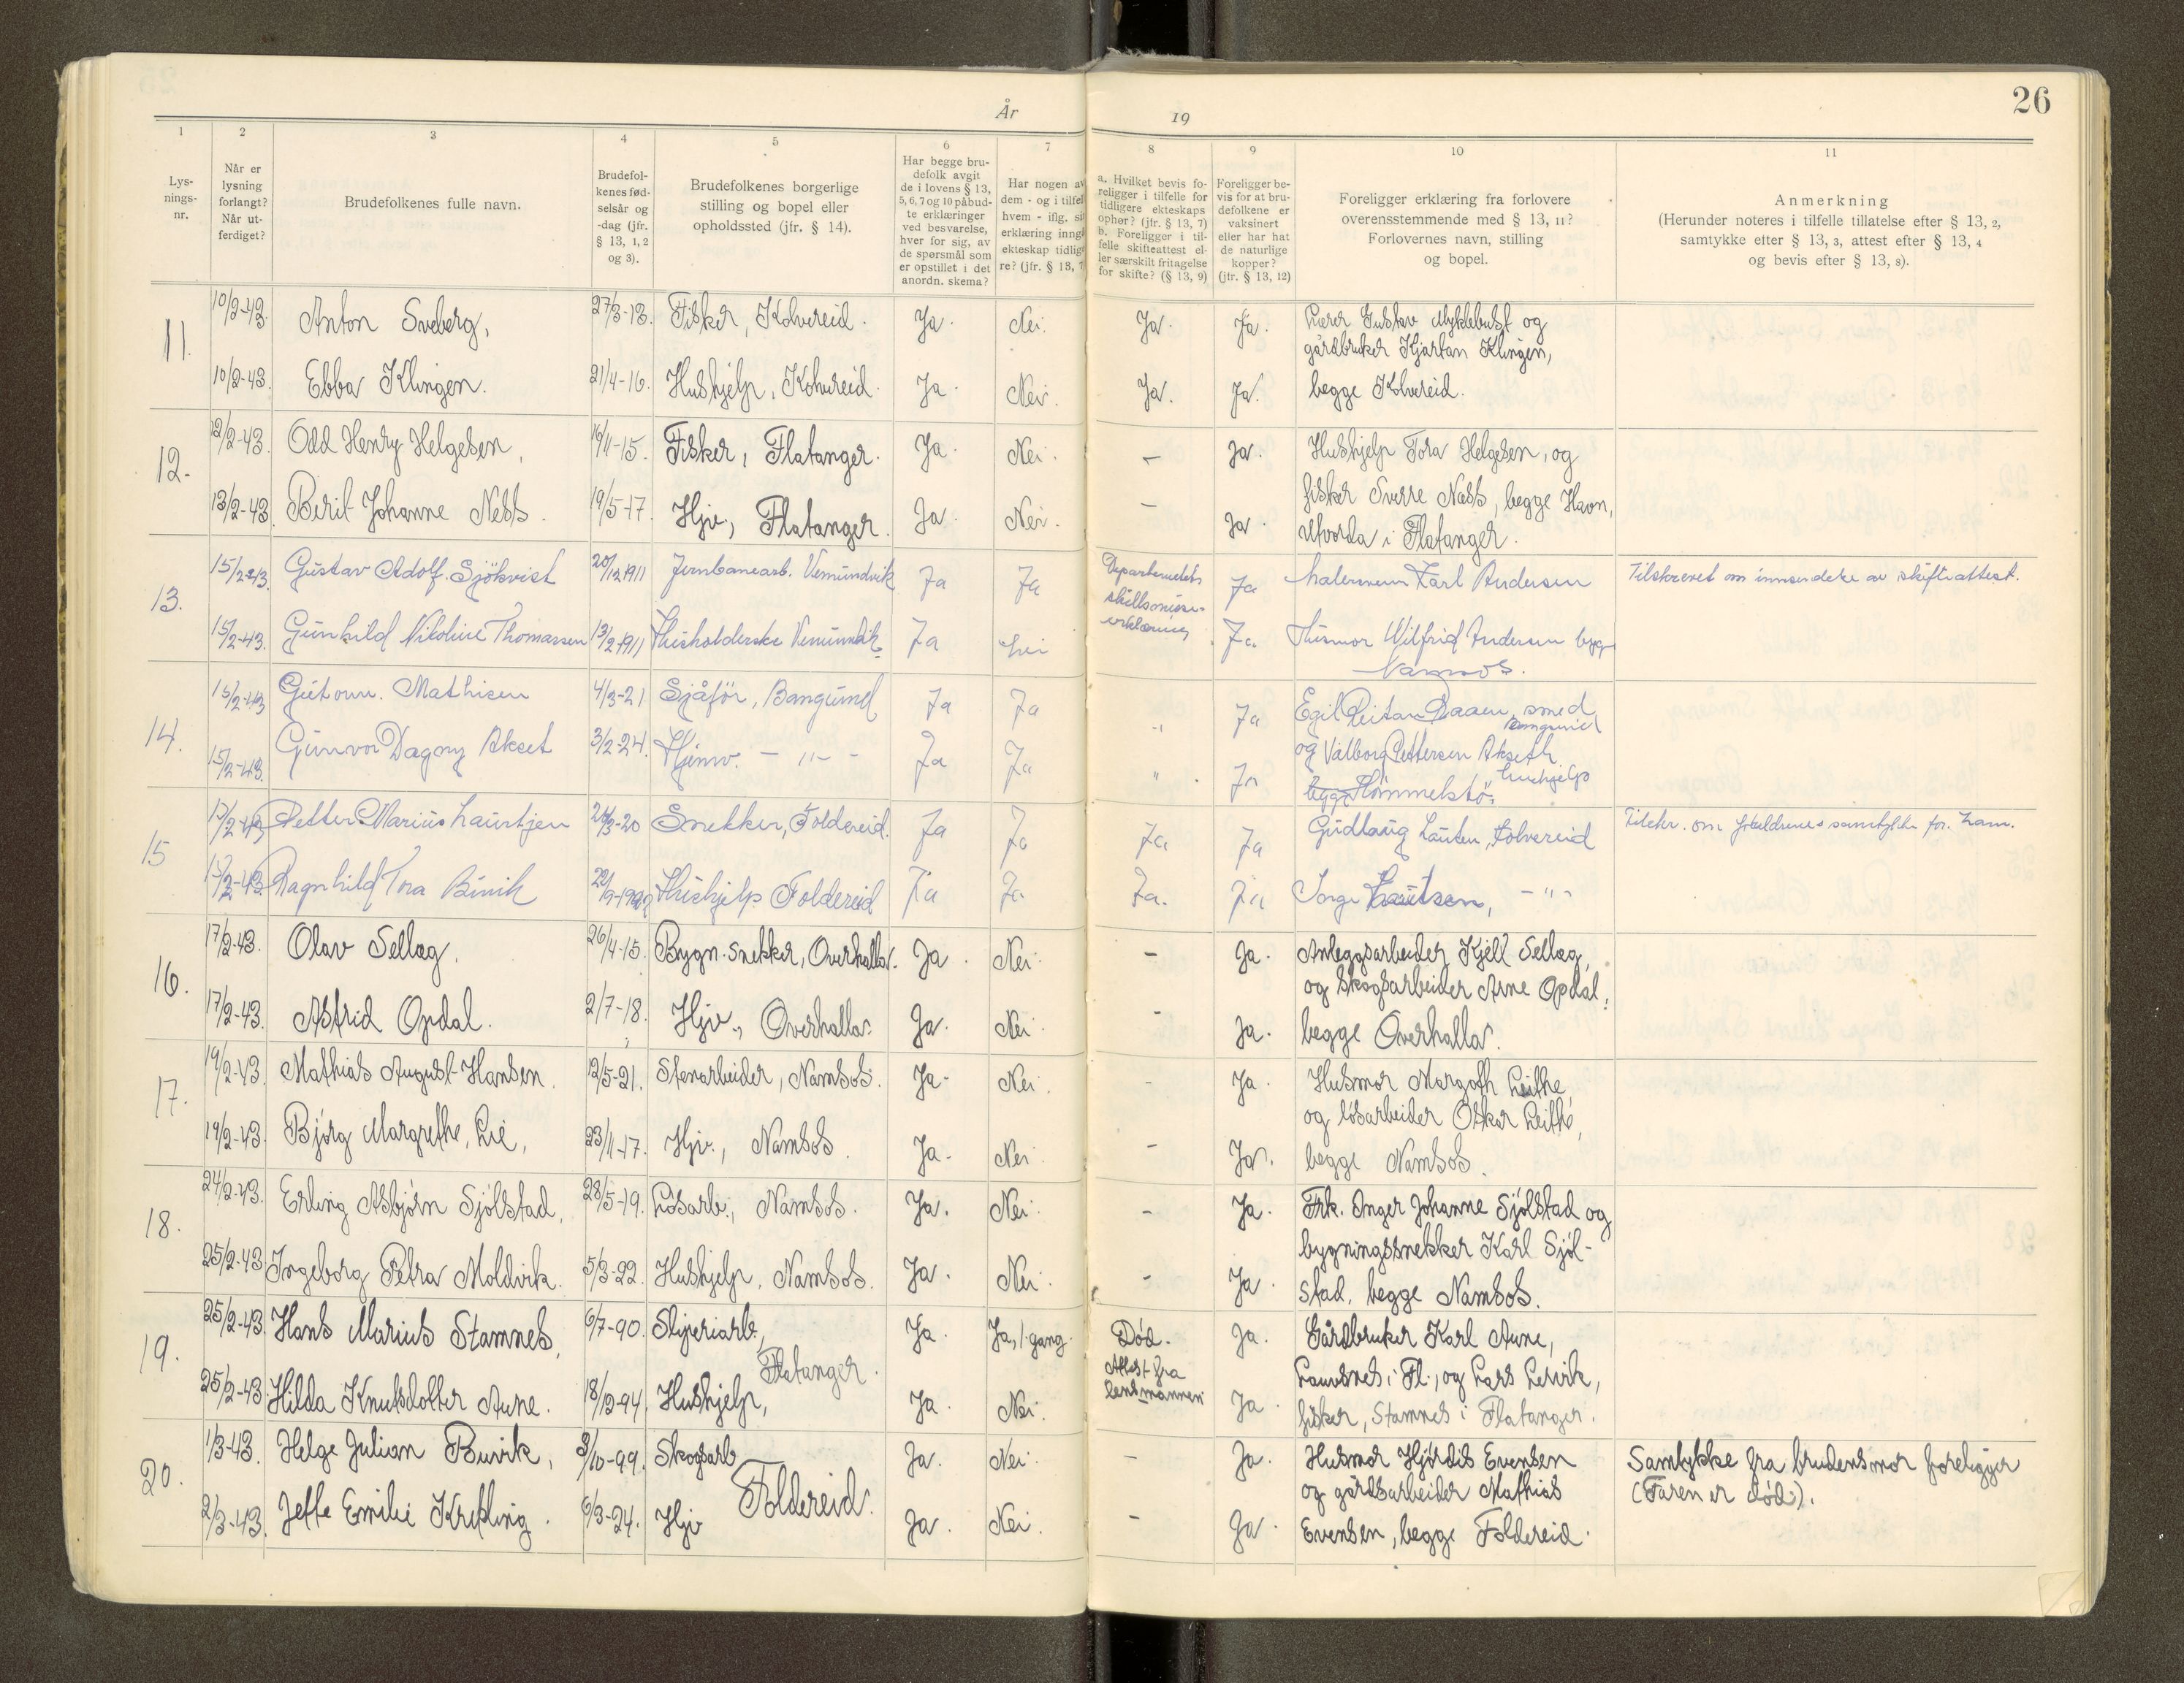 År 19
26
1
2
3
4
5
6
7
8
9
10
11
Lys-
nings-
nr.
Når er
lysning
forlangt?
Når ut-
ferdiget?
Brudefolkenes fulle navn.
Brudefol-
kenes fød-
selsår og
-dag (jfr.
§ 13, 1,2
og 3).
Brudefolkenes borgerlige
stilling og bopel eller
opholdssted (jfr. § 14).
Har begge bru-
defolk avgit
de i lovens § 13,
5, 6, 7 og 10 påbud-
te erklæringer
ved besvarelse,
hver for sig, av
de spørsmål som
er opstillet i det
anordn. skema?
Har nogen av
dem - og i tilfel
hvem - iflg. si
erklæring inng
ekteskap tidlig
re? (jfr. § 13, 7
a. Hvilket bevis fo-
religger i tilfelle for
tidligere ekteskaps
ophør? (jfr. § 13, 7)
b. Foreligger i til-
felle skifteattest el-
ler særskilt fritagelse
for skifte? (§ 13, 9)
Foreligger be-
vis for at bru-
defolkene er
vaksinert
eller har hat
de naturlige
kopper?
(jfr. § 13, 12)
Foreligger erklæring fra forlovere
overensstemmende med § 13, 11?
Forlovernes navn, stilling
og bopel.
Anmerkning
(Herunder noteres i tilfelle tillatelse efter § 13, 2,
samtykke efter § 13, 3, attest efter § 13, 4
og bevis efter § 13, 8).
11.
10/2-43. Anton Sveberg, 27/3-13. Fisker, Kolvereid. Ja. Nei. Ja. Ja. Lærer Gustav Myklebust og
gårdbruker Kjartan Klingen,
10/2-43. Ebba Klingen. 21/4-16. Hushjelp, Kolvereid. Ja. Nei. Ja. Ja. begge Kolvereid.
12.
12/2-43. Odd Henry Helgesen, 19/11-15. Fisker, Flatanger. Ja. Nei. - Ja. Hushjelp Tora Helgesen, og
fisker Sverre Ness, begge Havn,
13/2-43. Berit Johanne Ness. 19/5-17. Hjv., Flatanger. Ja. Nei. - Ja. Utvorda i Flatanger.
13.
15/2-43. Gustav Adolf. Sjökvist 20/12 1911 Jernbanearb. Vemundvik Ja Ja Departementets Ja Malermann Karl Andersen Tilskrevet om innsendelse av skifteattest.
skillsmisse-
erklæring
15/2-43. Gunhild Nikoline Thomassen 13/2 1911 Husholderske Vemundvik. Ja Nei Ja Husmor Wilfrid Andersen begge
Namsos.
14.
15/2-43 Guttorm. Mathisen 4/3-21 Sjåför, Bangsund Ja Ja " Ja Egil Reitan Daaen, smed
Bangsund
15/2-43. Gunvor Dagny Akset 3/2-24. Hjemv. - " - Ja Ja " Ja og Valborg Pettersen Akseth
hushjelp
begge Hommelstö.
15
15/2-43 Petter Marius Laurtjen 24/3-20 Snekker, Foldereid. Ja Ja Ja Ja Gudlaug Lauten, Kolvereid Tilskr. om foreldrenes samtykke for. ham.
15/2-43 Ragnhild Tora Binik Hushjelp Foldereid Ja Ja Ja. Ja Lautsen, - " -
16.
17/2-43. Olav Sellæg. 26/4-15. Bygn. snekker, Overhalla. Ja. Nei. - Ja. Anleggsarbeider Kjell Sellæg,
og skogsarbeider Arne Opdal,
17/2-43. Astrid Opdal. 2/7-18. Hjv., Overhalla. Ja. Nei. - Ja. begge Overhalla.
17.
19/2-43. Mathias August Hansen. 12/5-21. Stenarbeider, Namsos. Ja. Nei. - Ja. Husmor Margoth Leithe,
og løsarbeider Oskar Leithe,
19/2-43. Bjørg Margrethe, Lie, 23/11-17. Hjv., Namsos. Ja. Nei. - Ja. begge Namsos.
18.
24/2-43. Erling Asbjørn Sjølstad, 28/5-19. Løsarb., Namsos. Ja. Nei. - Ja. Frk. Inger Johanne Sjølstad og
bygningssnekker Karl Sjøl-
25/2-43. Ingeborg Petra Moldvik. 5/3-22. Hushjelp, Namsos. Ja. Nei. - Ja. stad, begge Namsos.
19.
25/2-43. Hans Marius Stamnes, 6/7-90. Sliperiarb., Ja. Ja, 1. gang. Død. Ja. Gårdbruker Karl Aune,
Flatanger. Attest fra Lauvsnes i Fl., og Lars Lervik,
lensmannen
25/2-43. Hilda Knutsdotter Aune. 18/12-94. Hushjelp, Ja. Nei. Ja. fisker, Stamnes i Flatanger.
20.
1/3-43. Helge Julian Buvik, 3/10-99. Skogsarb. Ja. Nei. - Ja. Husmor Hjørdis Evensen Samtykke fra brudens mor foreligger
Foldereid. og gårdsarbeider Mathias (Faren er død).
2/3-43. Jette Emilie Krekling. 6/3-24. Hjv Ja. Nei. - Ja. Evensen, begge Foldereid.